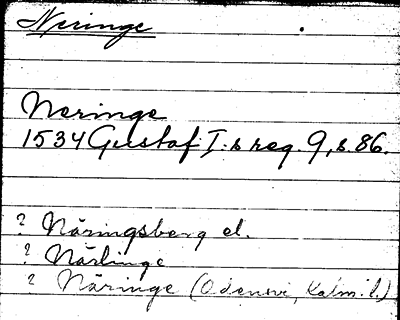 Neringe
Neringe
1534 Gustaf I:s reg. 9, s. 86.
? Näringsberg el.
? Närlinge
? Näringe (Odensvi, Kalm. l.)